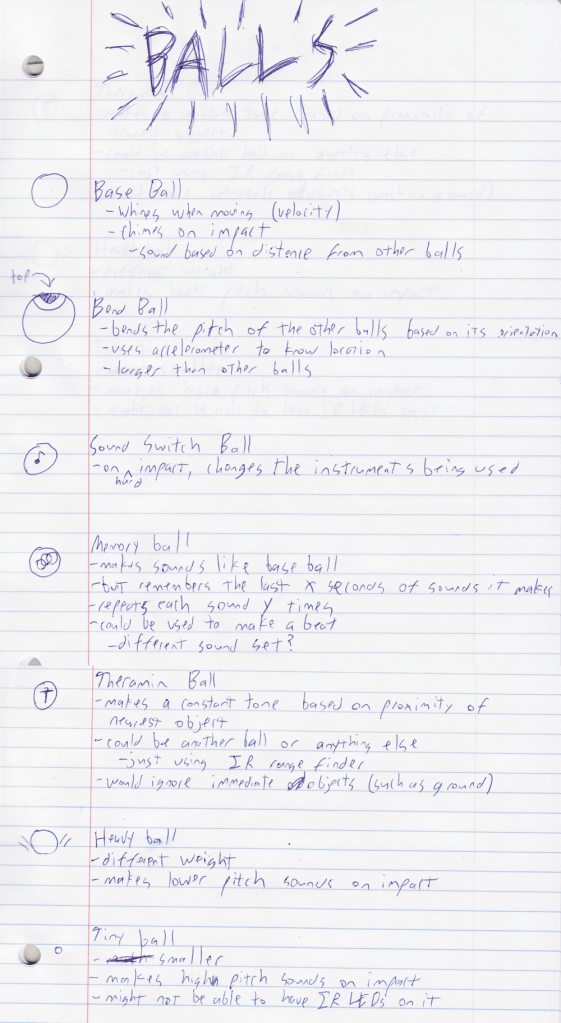 BALLS
Base Ball
- Whines when moving (velocity)
- Chimes on impact
- sound based on distance from other balls
top
Bend Ball
- bends the pitch of the other balls based on its orientation
- uses accelerometer to know location
- larger than other balls
Sound Switch Ball
- on hard impact, changes the instruments being used
Memory ball
- makes sounds like base ball
- but remembers the last X seconds of sounds it makes
- repeats each sound Y times
- could be used to make a beat
- different sound set?
T
Theramin Ball
- makes a constant tone based on proximity of
nearest object
- could be another ball or anything else
- just using IR range finder
- would ignore immediate objects (such as ground)
Heavy ball
- different weight
- makes lower pitch sounds on impact
Tiny ball
- smaller
- makes high pitch sounds on impact
- might not be able to have IR LEDs on it